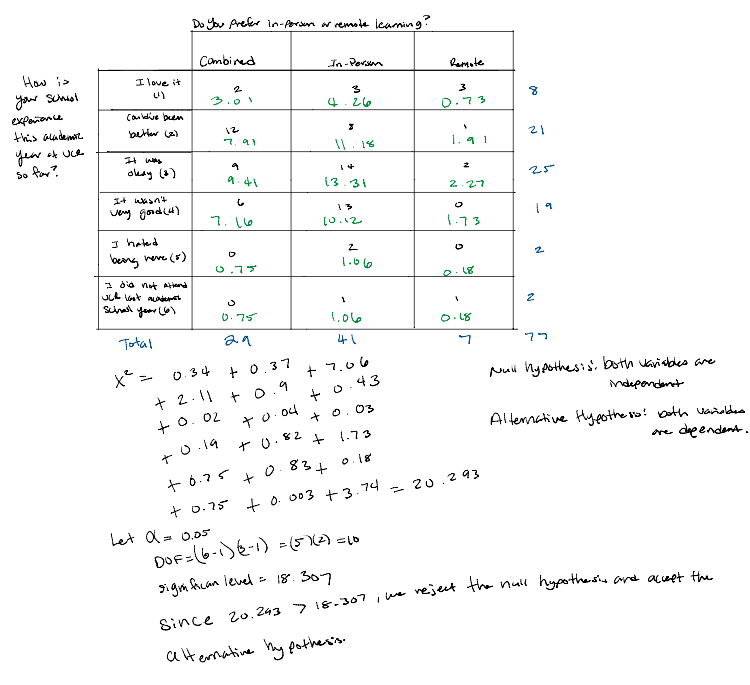 Do you prefer in-person or remote learning?
Combined In-Person Remote
How is your school experience this academic year at UCR so far?
I love it (1) 2 3 3 8
3.01 4.26 0.73
Could've been better (2) 12 8 1 21
7.91 11.18 1.91
It was okay (3) 9 14 2 25
9.41 13.31 2.27
It wasn't very good (4) 6 13 0 19
7.16 10.12 1.73
I hated being here (5) 0 2 0 2
0.75 1.06 0.18
I did not attend UCR last academic school year (6) 0 1 1 2
0.75 1.06 0.18
Total 29 41 7 77
X² = 0.34 + 0.37 + 7.06
+ 2.11 + 0.9 + 0.43
+ 0.02 + 0.04 + 0.03
+ 0.19 + 0.82 + 1.73
+ 0.75 + 0.83 + 0.18
+ 0.75 + 0.003 + 3.74 = 20.293
Null hypothesis: both variables are
independent
Alternative Hypothesis: both variables
are dependent.
Let α = 0.05
DOF = (6-1)(3-1) = (5)(2) = 10
significan level = 18.307
Since 20.293 > 18.307, we reject the null hypothesis and accept the
alternative hypothesis.